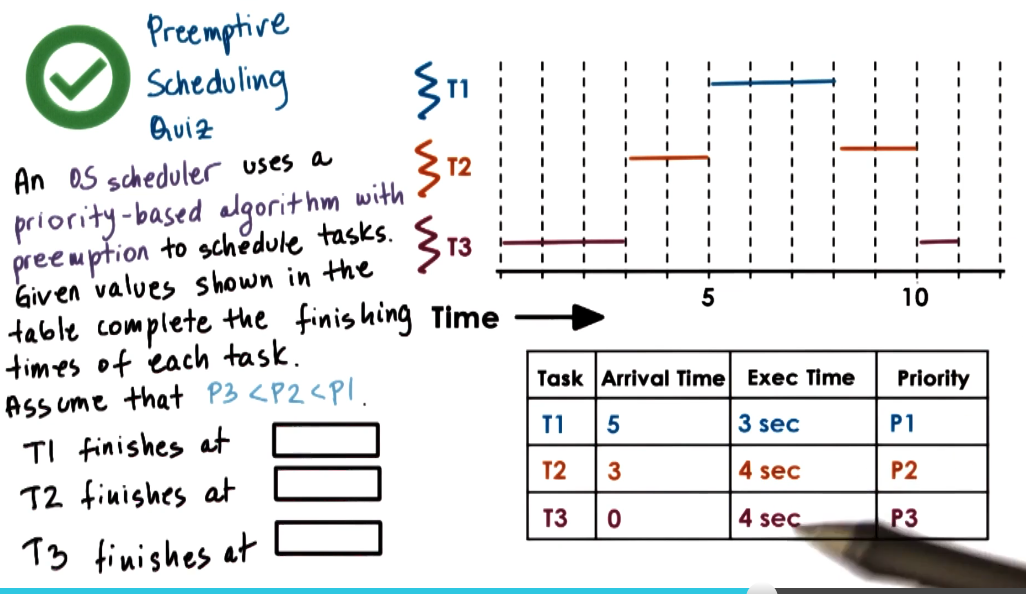 Preemptive
Scheduling
Quiz
An OS scheduler uses a
priority-based algorithm with
preemption to schedule tasks.
Given values shown in the
table complete the finishing
times of each task.
Assume that P3 < P2 < P1.
T1 finishes at
T2 finishes at
T3 finishes at
T1
T2
T3
5 10
Time
Task Arrival Time Exec Time Priority
T1 5 3 sec P1
T2 3 4 sec P2
T3 0 4 sec P3